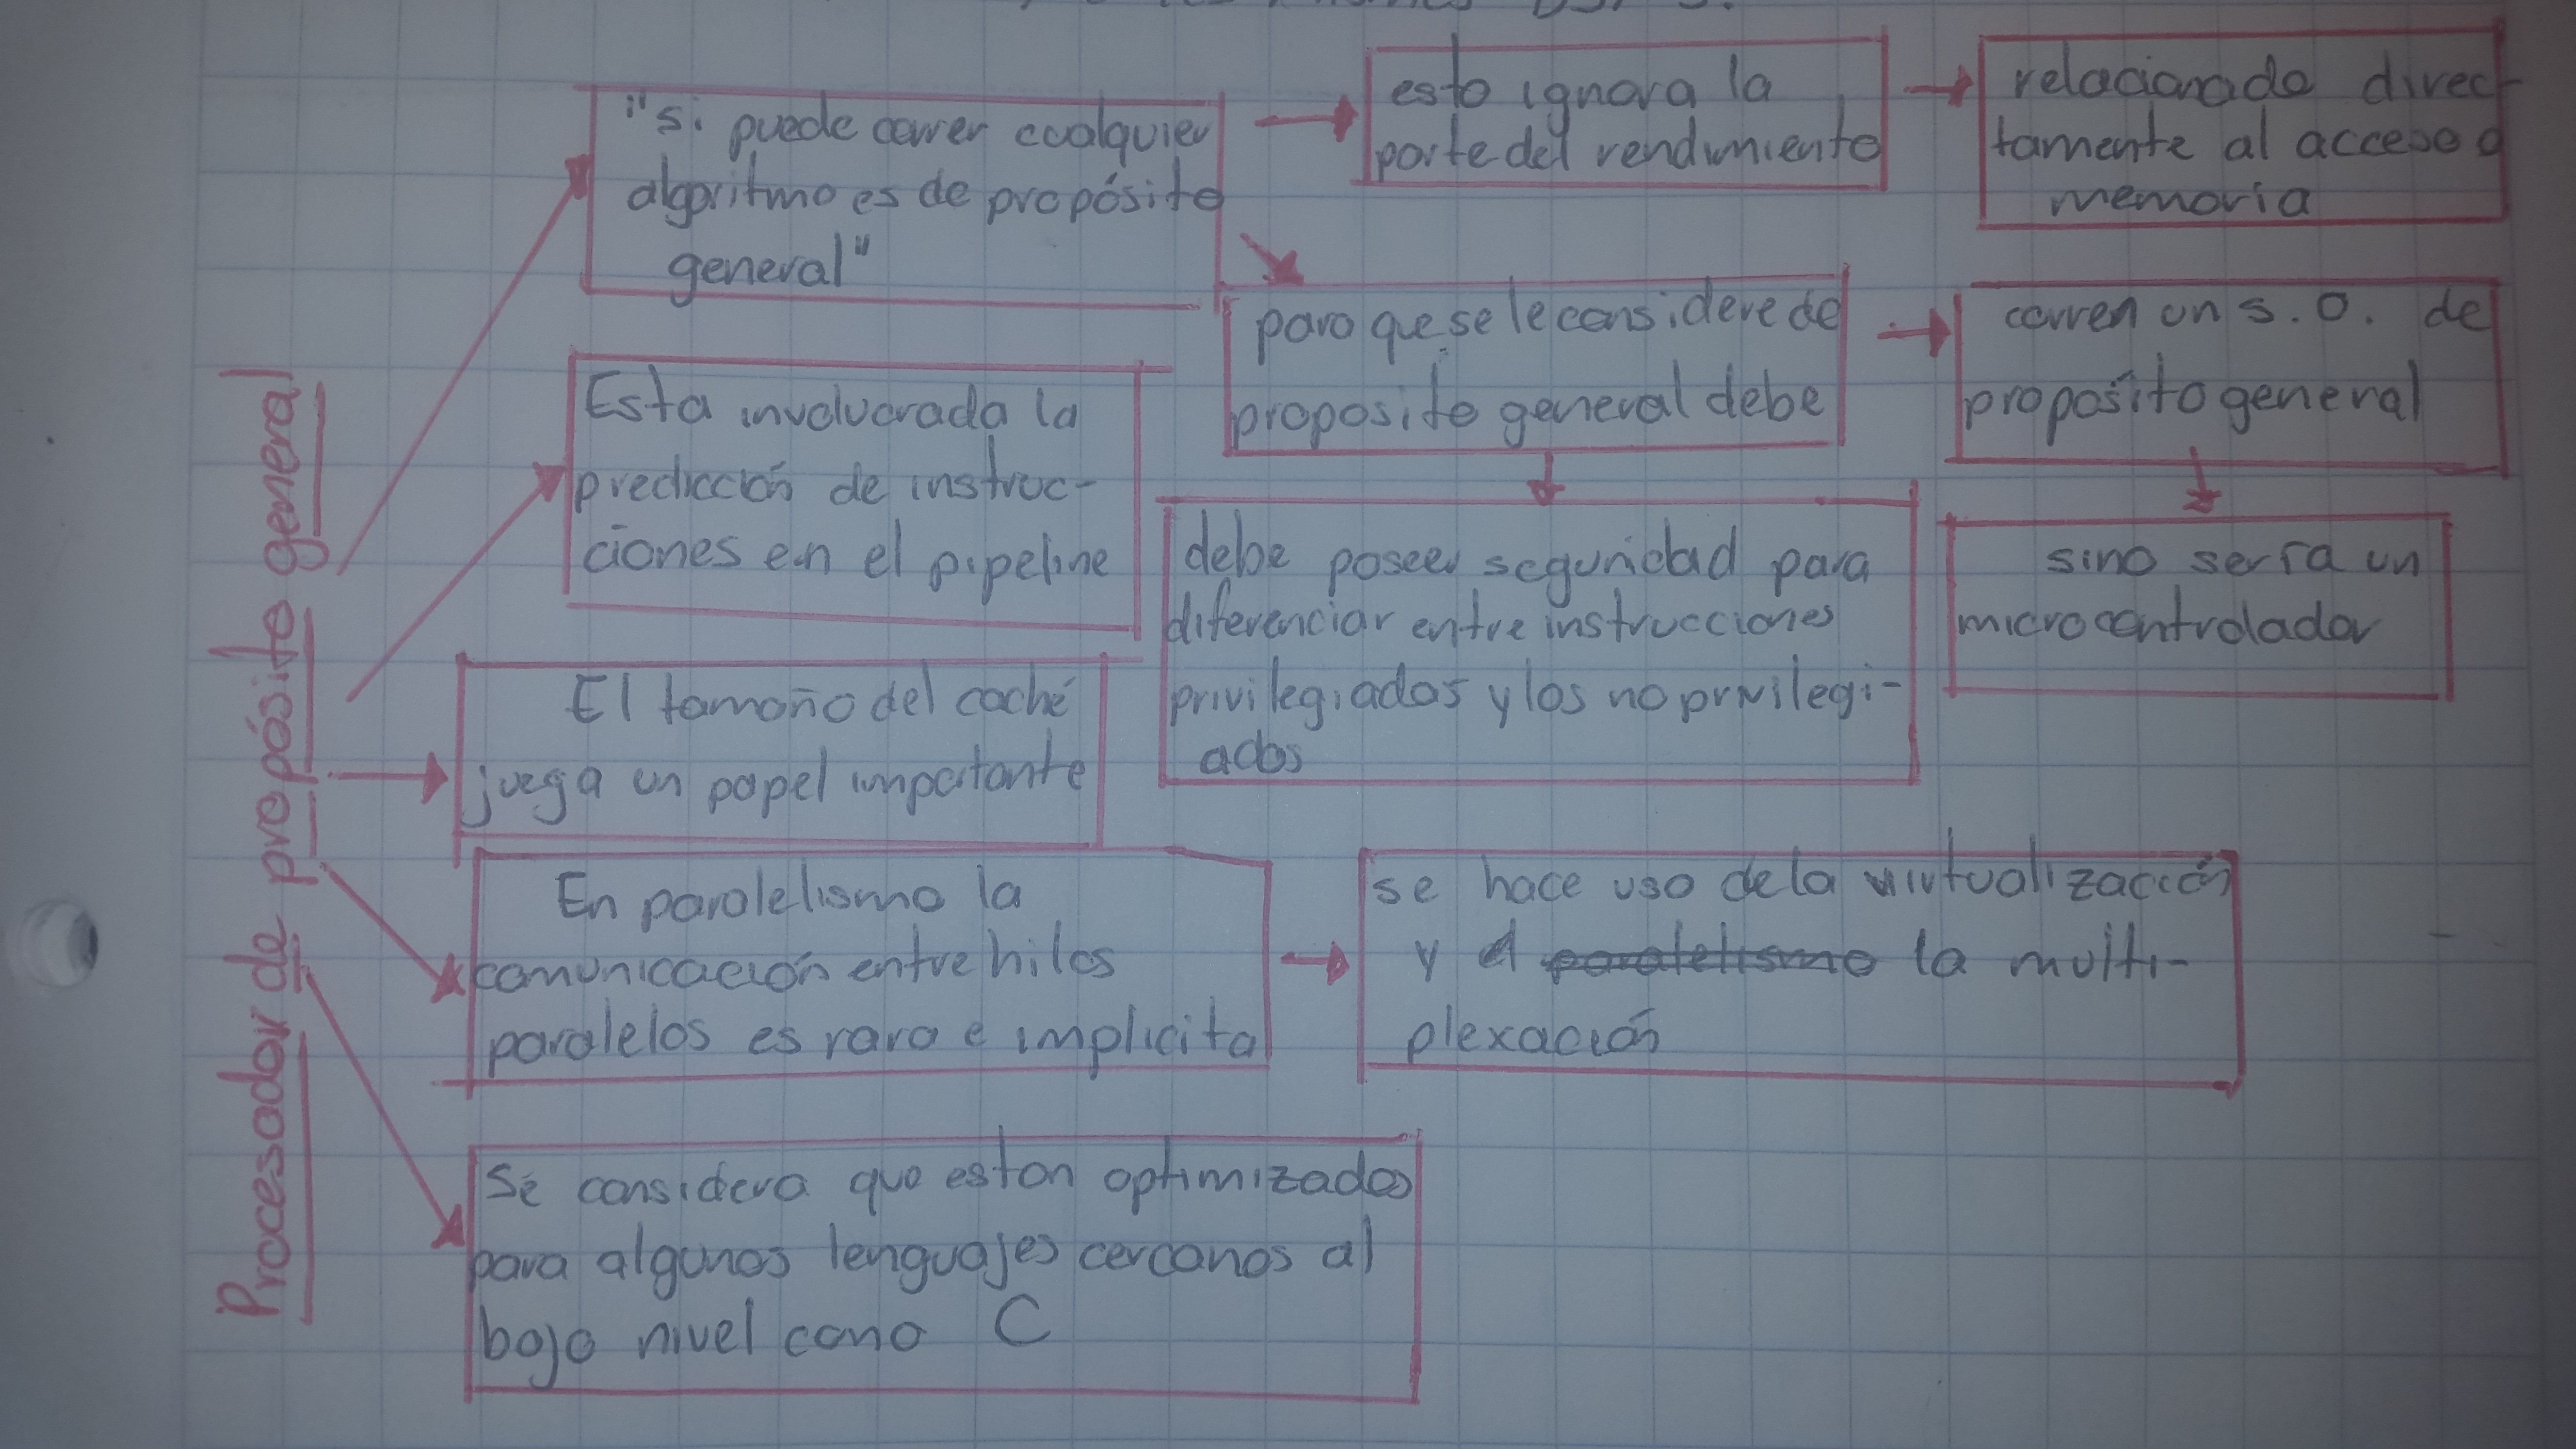 DSP's.
Procesador de propósito general
"si puede correr cualquier
algoritmo es de propósito
general"
esto ignora la
parte del rendimiento
relacionado direc-
tamente al acceso a
memoria
para que se le considere de
proposito general debe
corren un s.o. de
proposito general
sino sería un
microcontrolador
debe poseer seguridad para
diferenciar entre instrucciones
privilegiadas y las no privilegi-
adas
Esta involucrada la
predicción de instruc-
ciones en el pipeline
El tamaño del caché
juega un papel importante
En paralelismo la
comunicación entre hilos
paralelos es rara e implicita
se hace uso de la virtualización
y el paralelismo la multi-
plexación
Se considera que estan optimizados
para algunos lenguajes cercanos al
bajo nivel como C